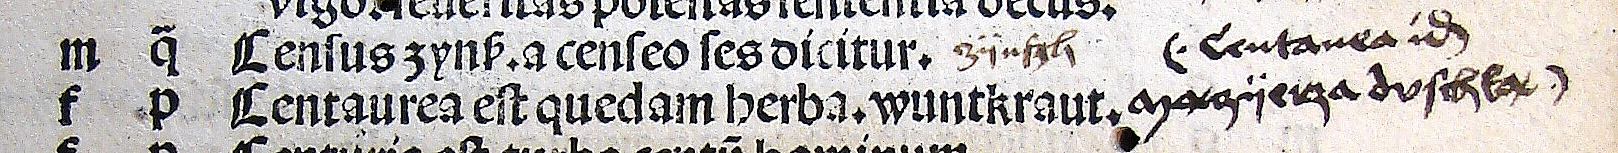 vigor. seueritas potestas sententia decus.
m q̃ Census zynß. a censeo ses dicitur. (· Centaurea id
f p Centaurea est quedam herba. wuntkraut. duschka ·)